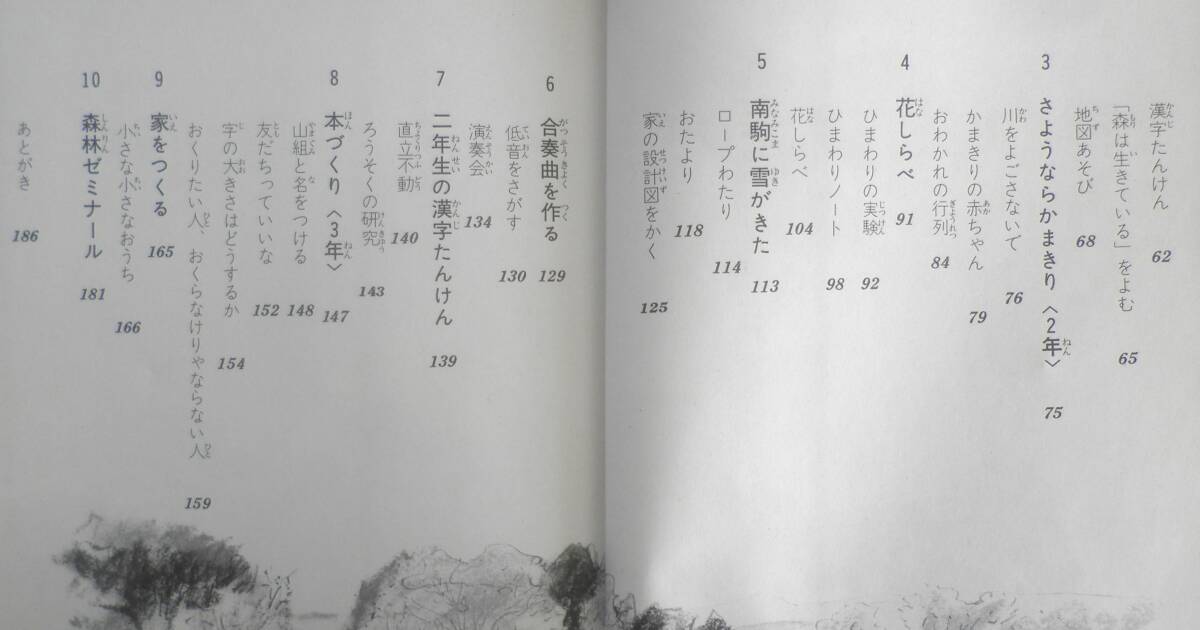 漢字たんけん 62
「森は生きている」をよむ 65
地図あそび 68
3 さようならかまきり〈2年〉 75
川をよごさないで 76
かまきりの赤ちゃん 79
おわかれの行列 84
4 花しらべ 91
ひまわりの実験 92
ひまわりノート 98
花しらべ 104
5 南駒に雪がきた 113
ロープわたり 114
おたより 118
家の設計図をかく 125
6 合奏曲を作る 129
低音をさがす 130
演奏会 134
7 二年生の漢字たんけん 139
直立不動 140
ろうそくの研究 143
8 本づくり〈3年〉 147
山組と名をつける 148
友だちっていいな 152
字の大きさはどうするか 154
おくりたい人、おくらなけりゃならない人 159
9 家をつくる 165
小さな小さなおうち 166
10 森林ゼミナール 181
あとがき 186